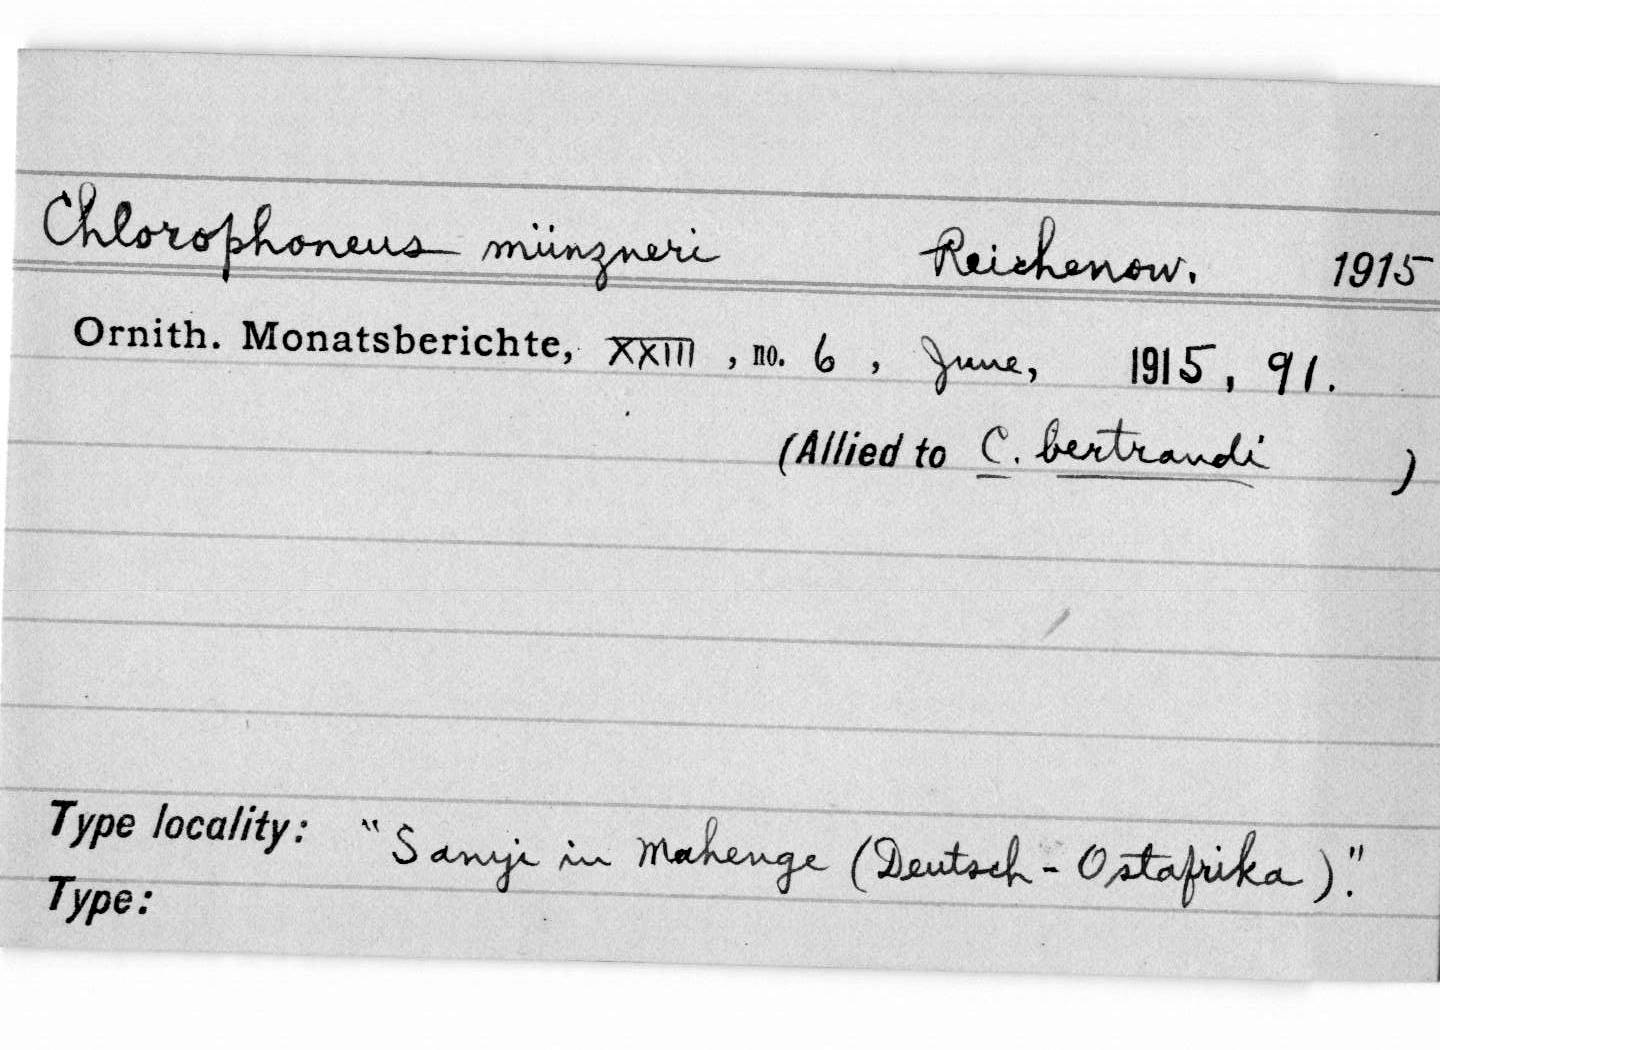 Chlorophoneus münzneri Reichenow. 1915
Ornith. Monatsberichte, XXIII, no. 6, June, 1915, 91.
(Allied to C. bertrandi )
Type locality: "Sanji in Mahenge (Deutsch-Ostafrika)."
Type: